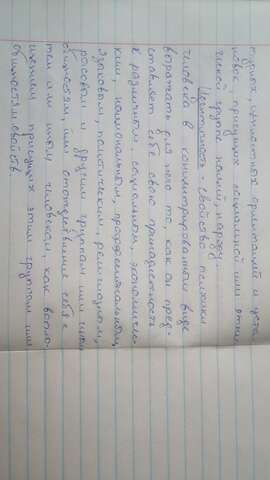 турных, ценностных ориентаций и уста-
новок, присущих социальной или этни-
ческой группе, нации, народу.
Идентичность - свойство психики
человека в концентрированном виде
выражать для него то, как он пред-
ставляет себе свою принадлежность
к различным социальным, экономичес-
ким, национальным, профессиональным,
языковым, политическим, религиозным,
расовым и другим группам или иным
общностям, или отождествление себя с
тем или иным человеком, как вопло-
щением присущих этим группам или
общностям свойств.